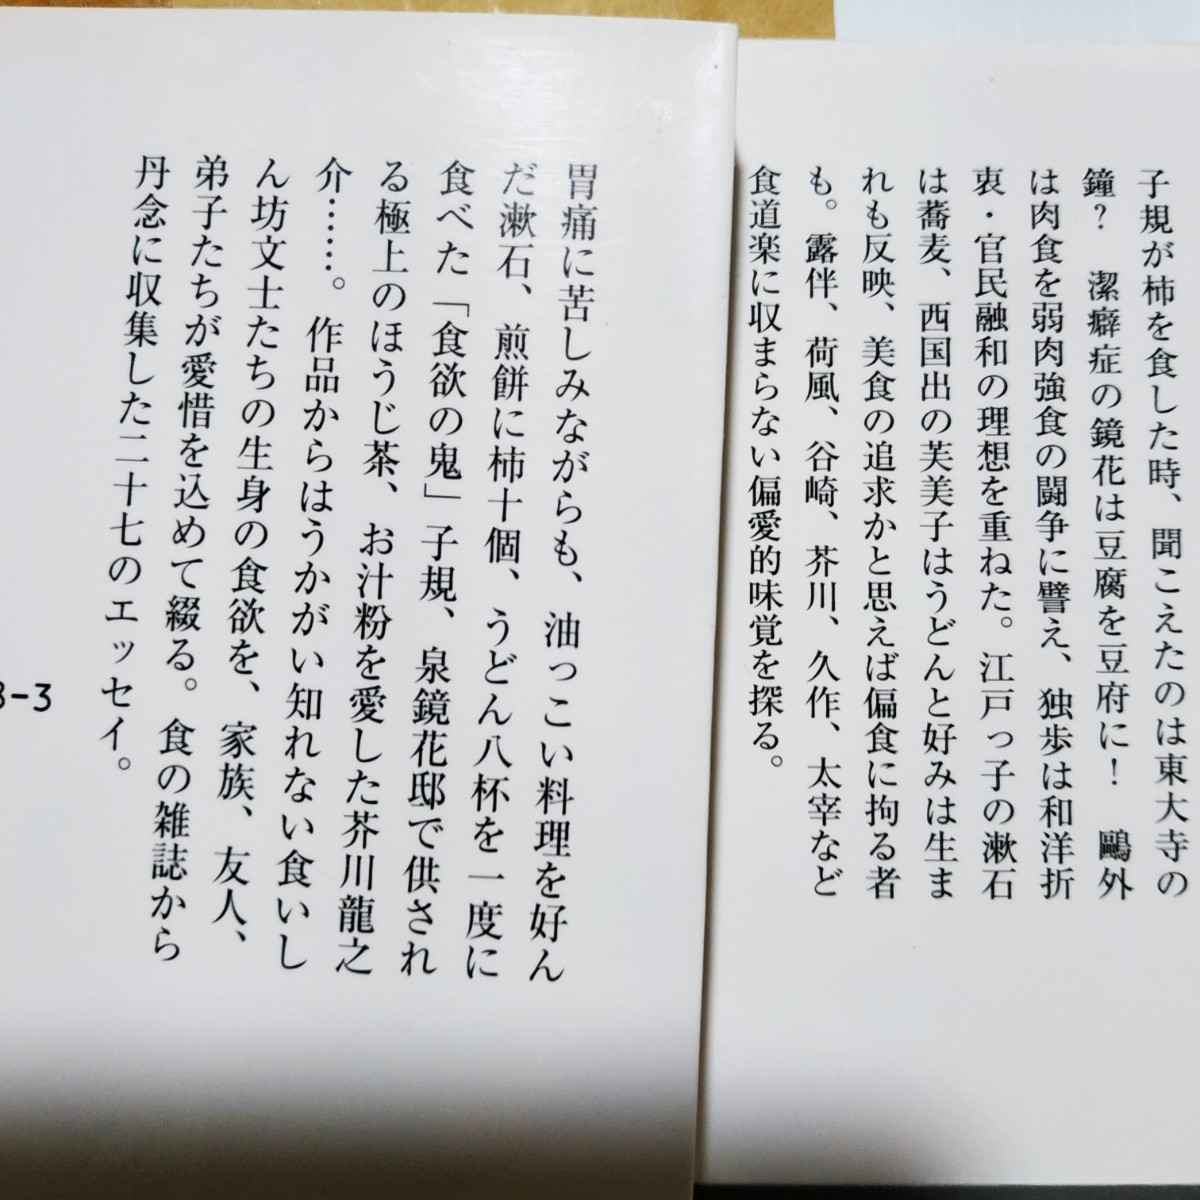 子規が柿を食した時、聞こえたのは東大寺の
鐘？　潔癖症の鏡花は豆腐を豆府に！　鷗外
は肉食を弱肉強食の闘争に譬え、独歩は和洋折
衷・官民融和の理想を重ねた。江戸っ子の漱石
は蕎麦、西国出の芙美子はうどんと好みは生ま
れも反映、美食の追求かと思えば偏食に拘る者
も。露伴、荷風、谷崎、芥川、久作、太宰など
食道楽に収まらない偏愛的味覚を探る。
胃痛に苦しみながらも、油っこい料理を好ん
だ漱石、煎餅に柿十個、うどん八杯を一度に
食べた「食欲の鬼」子規、泉鏡花邸で供され
る極上のほうじ茶、お汁粉を愛した芥川龍之
介……。作品からはうかがい知れない食いし
ん坊文士たちの生身の食欲を、家族、友人、
弟子たちが愛惜を込めて綴る。食の雑誌から
丹念に収集した二十七のエッセイ。
-3